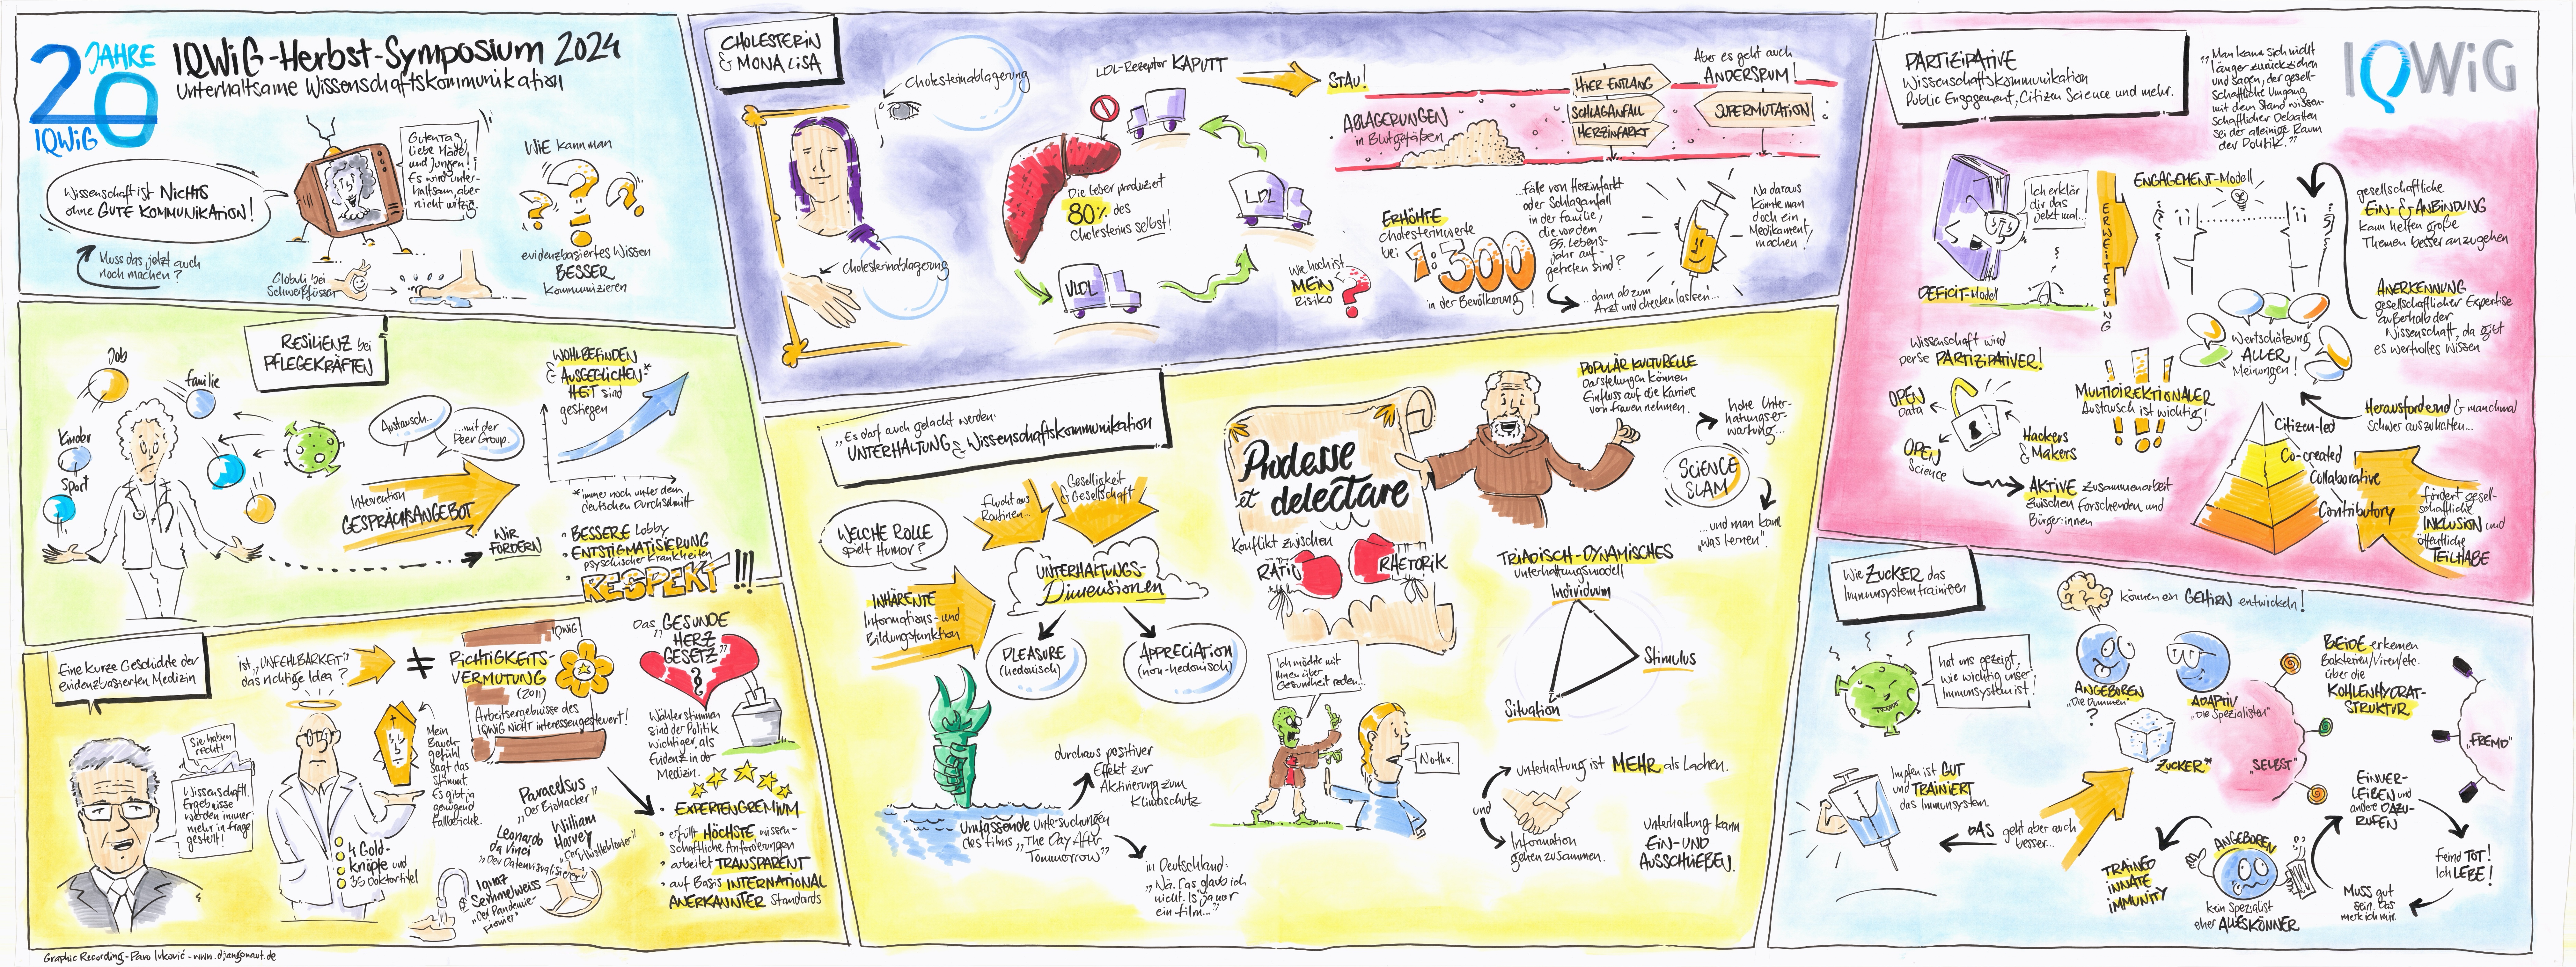 20 JAHRE
IQWiG
IQWiG-Herbst-Symposium 2024
Unterhaltsame Wissenschaftskommunikation
Wissenschaft ist NICHTS
ohne GUTE KOMMUNIKATION!
Muss das jetzt auch
noch machen?
Guten Tag,
liebe Mädels
und Jungen!
Es wird unter-
haltsam, aber
nicht witzig.
Globuli bei
Schweißfüssen
WiE kann man
evidenzbasiertes Wissen
BESSER
kommunizieren
CHOLESTERiN
& MONA LiSA
Cholesterinablagerung
Cholesterinablagerung
LDL-Rezeptor KAPUTT
STAU!
Die Leber produziert
80% des
Cholesterins selbst!
LDL
VLDL
ABLAGERUNGEN
in Blutgefäßen
HiER ENTLANG
SCHLAGANFALL
HERZINFARKT
Aber es geht auch
ANDERSRUM!
SUPERMUTATION
Wie hoch ist
MEiN
Risiko
?
ERHÖHTE
Cholesterinwerte
bei
1:300
in der Bevölkerung!
...Fälle von Herzinfarkt
oder Schlaganfall
in der Familie,
die vor dem
55. Lebens-
jahr auf-
getreten sind?
...dann ab zum
Arzt und checken lassen...
Na daraus
könnte man
doch ein
Medikament
machen!
PARTIZIPATIVE
Wissenschaftskommunikation
Public Engagement, Citizen Science und mehr.
"Man kann sich nicht
länger zurückziehen
und sagen, der gesell-
schaftliche Umgang
mit dem Stand wissen-
schaftlicher Debatten
sei der alleinige Raum
der Politik."
IQWiG
Ich erklär
dir das
jetzt mal...
DEFICIT-Modell
ERWEITERUNG
ENGAGEMENT-Modell
gesellschaftliche
EiN- & ANBINDUNG
kann helfen große
Themen besser anzugehen
ANERKENNUNG
gesellschaftlicher Expertise
außerhalb der
Wissenschaft, da gibt
es wertvolles Wissen
Wertschätzung
ALLER
Meinungen!
Wissenschaft wird
per se PARTIZIPATIVER!
OPEN
Data
OPEN
Science
Hackers
& Makers
AKTIVE Zusammenarbeit
zwischen Forschenden und
Bürger:innen
MULTIDIREKTIONALER
Austausch ist wichtig!
Herausfordernd & manchmal
schwer auszuhalten...
Citizen-led
Co-created
Collaborative
Contributory
fördert gesell-
schaftliche
INKLUSION und
öffentliche
TEILHABE
RESILIENZ bei
PFLEGEKRÄFTEN
Job
Familie
Kinder
Sport
Austausch...
...mit der
Peer Group.
Intervention
GESPRÄCHSANGEBOT
WOHLBEFINDEN
& AUSGEGLICHEN-*
HEIT sind
gestiegen
*immer noch unter dem
deutschen Durchschnitt
WIR
FORDERN
• BESSERE Lobby
• ENTSTIGMATISIERUNG
psyschischer Krankheiten
• RESPEKT!!!
"Es darf auch gelacht werden:
UNTERHALTUNG & Wissenschaftskommunikation
WELCHE ROLLE
spielt Humor?
Flucht aus
Routinen...
Geselligkeit
& Gesellschaft
UNTERHALTUNGS-
Dimensionen
INHÄRENTE
Informations- und
Bildungsfunktion
PLEASURE
(hedonisch)
APPRECIATION
(non-hedonisch)
durchaus positiver
Effekt zur
Aktivierung zum
Klimaschutz
Umfassende Untersuchungen
des Films "The Day After
Tommorrow"
in Deutschland:
"Nä. Das glaub ich
nicht. Is ja nur
ein Film..."
Prodesse
et delectare
Konflikt zwischen
RATIO
RHETORIK
POPULÄR KULTURELLE
Darstellungen können
Einfluss auf die Karriere
von Frauen nehmen.
hohe Unter-
haltungser-
wartung...
SCiENCE
SLAM
...und man kann
"was lernen".
TRIADISCH-DYNAMISCHES
Unterhaltungsmodell
Individuum
Stimulus
Situation
Ich möchte mit
Ihnen über
Gesundheit reden...
No thx.
Unterhaltung ist MEHR als Lachen.
und
Information
gehen zusammen.
Unterhaltung kann
EiN- UND
AUSSCHLIEßEN.
Eine kurze Geschichte der
evidenzbasierten Medizin
Sie haben
recht!
Wissenschaftl.
Ergebnisse
werden immer
mehr in Frage
gestellt!
Ist "UNFEHLBARKEIT"
das richtige Idea?
≠
IQWiG
RICHTIGKEITS-
VERMUTUNG
(2011)
Arbeitsergebnisse des
IQWiG NICHT interessengesteuert!
Mein
Bauch-
gefühl
sagt das
stimmt.
Es gibt ja
genügend
Fallberichte.
4 Gold-
knöpfe und
35 Doktortitel
Paracelsus
"Der Biohacker"
Leonardo
da Vinci
"Der Datenvisualisierer"
William
Harvey
"Der Whistleblower"
Ignaz
Semmelweiss
"Der Pandemie-
Pionier"
Das "GESUNDE
HERZ
GESETZ"
§
Wählerstimmen
sind der Politik
wichtiger als
Evidenz in der
Medizin.
EXPERTENGREMIUM
• erfüllt HÖCHSTE wissen-
schaftliche Anforderungen
• arbeitet TRANSPARENT
• auf Basis INTERNATIONAL
ANERKANNTER Standards
Wie ZUCKER das
Immunsystem trainiert
hat uns gezeigt,
wie wichtig unser
Immunsystem ist!
können ein GEHIRN entwickeln!
ANGEBOREN
"Die Dummen"
?
ADAPTIV
"Die Spezialisten"
ZUCKER*
BEIDE erkennen
Bakterien/Viren/etc.
über die
KOHLENHYDRAT-
STRUKTUR
"SELBST"
"FREMD"
Impfen ist GUT
und TRAINIERT
das Immunsystem.
DAS geht aber auch
besser...
TRAINED
INNATE
IMMUNITY
ANGEBOREN
kein Spezialist
eher ALLESKÖNNER
EINVER-
LEIBEN und
andere DAZU-
RUFEN
Feind TOT!
Ich LEBE!
Muss gut
sein. Das
merk ich mir.
Graphic Recording - Paro Ivković - www.djangonaut.de